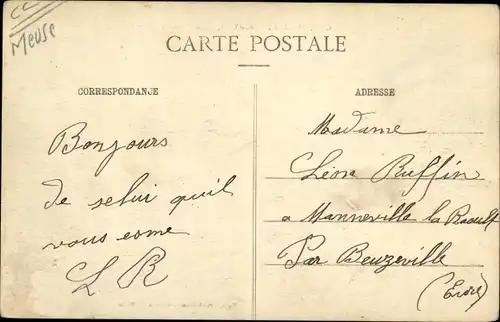 Meuse
CARTE POSTALE
CORRESPONDANCE
ADRESSE
Bonjours
de selui quil
vous eome
L R
Madame
Léna Ruffin
a Manneville la Raoult
Par Beuzeville
(Eure)